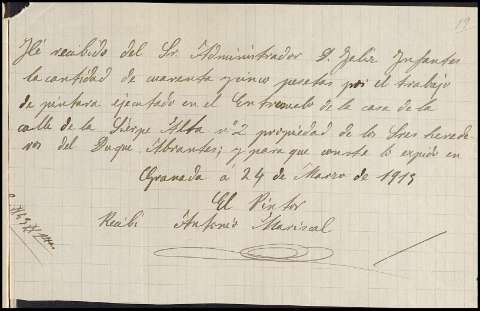 19
Hé recibido del Sr. Administrador D. Felix Infantes
la cantidad de cuarenta y cinco pesetas por el trabajo
de pintura ejecutado en el Entresuelo de la casa de la
calle de la Sierpe Alta nº 2 propiedad de los Sres herede-
ros del Duque Abrantes; y para que consta lo expido en
Granada a 24 de Marzo de 1913
El Pintor
Recibi Antonio Mariscal